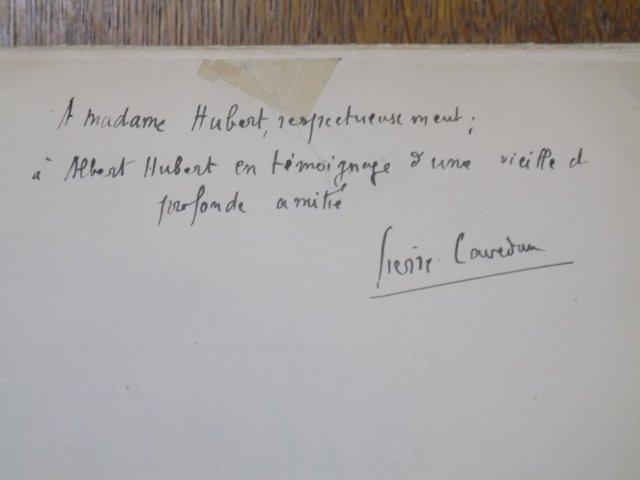 A madame Hubert, respectueusement;
à Albert Hubert en témoignage d'une vieille et
profonde amitié
Pierre